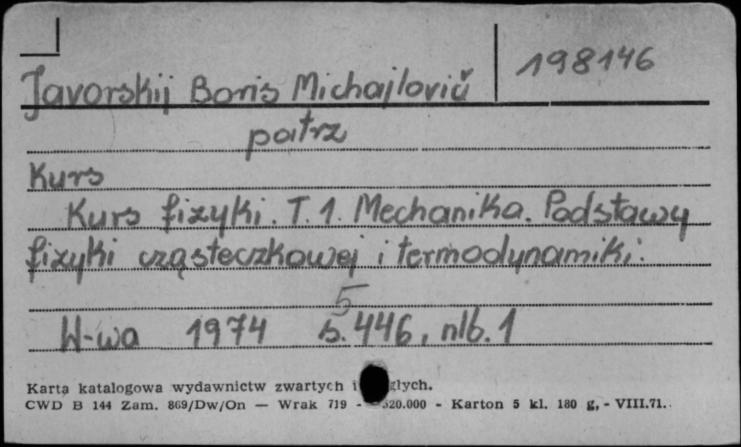 Javorskij Boris Michajlovič 198146
patrz
Kurs
Kurs fizyki. T. 1. Mechanika. Podstawy
fizyki cząsteczkowej i termodynamiki.
5
W-wa 1974 s. 446, nlb. 1
Karta katalogowa wydawnictw zwartych i
CWD B 144 Zam. 869/Dw/On — Wrak 719 - 320.000 - Karton 5 kl. 180 g, - VIII.71.